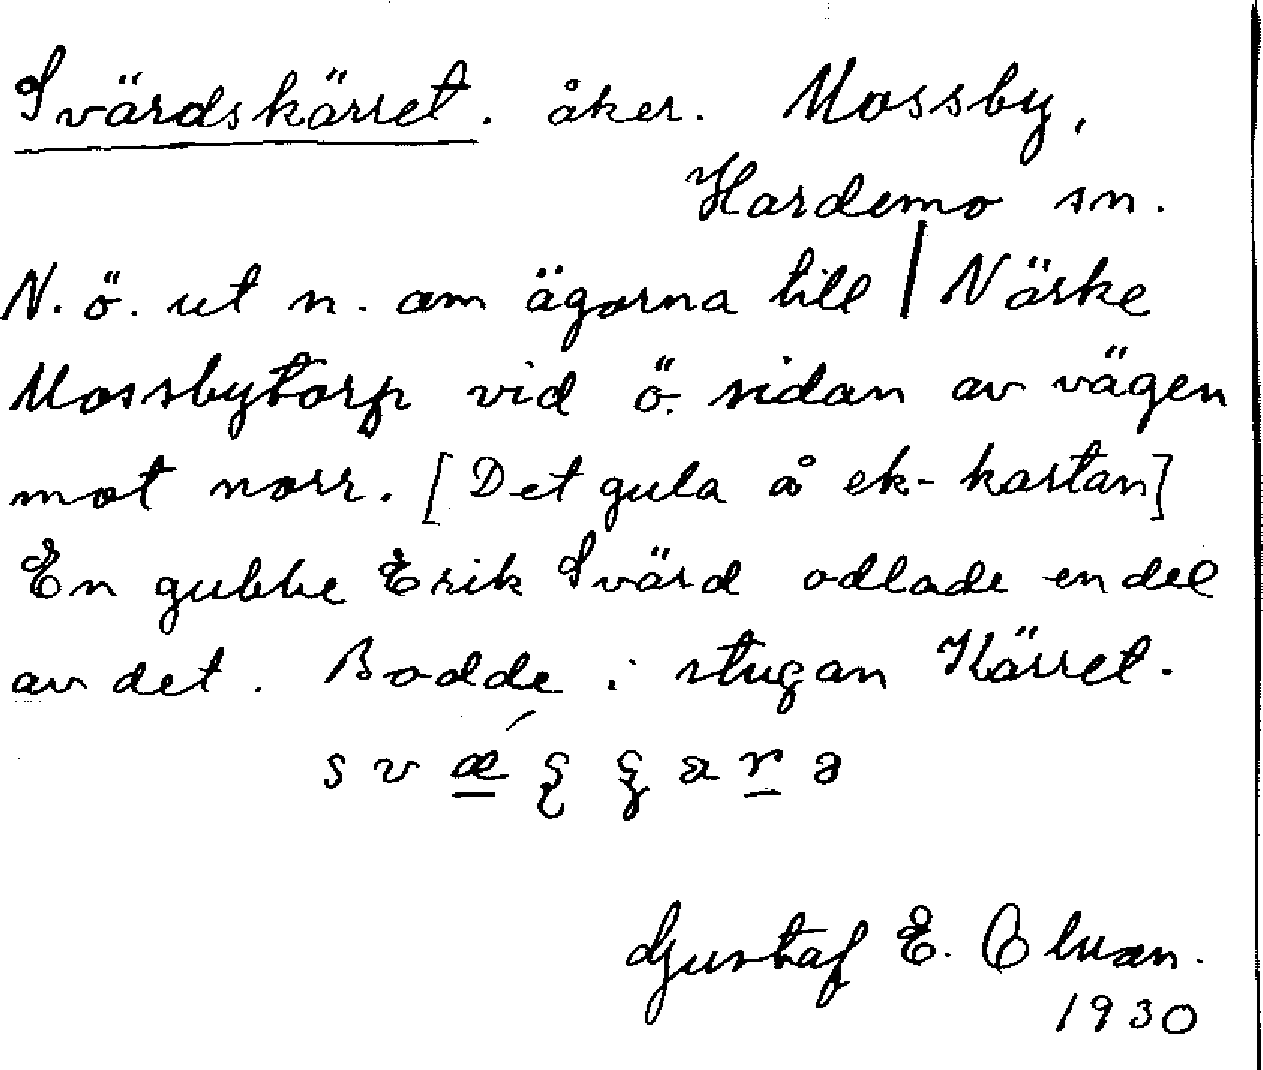 Svärdskärret. åker. Mossby,
Hardemo sn.
N. ö. ut n. om ägorna till | Närke
Mossbytorp vid ö. sidan av vägen
mot norr. [Det gula å ek-kartan]
En gubbe Erik Svärd odlade en del
av det. Bodde i stugan Kärret.
Gustaf E.
1930